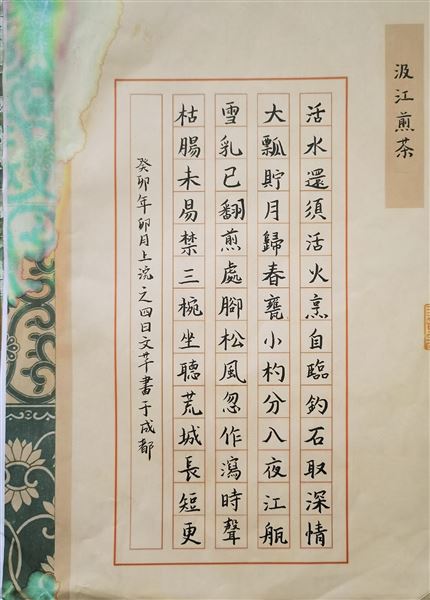 汲江煎茶
活水還須活火烹自臨釣石取深情
大瓢貯月歸春甕小杓分入夜江瓶
雪乳已翻煎處腳松風忽作瀉時聲
枯腸未易禁三椀坐聽荒城長短更
癸卯年卯月上浣之四日文芊書于成都